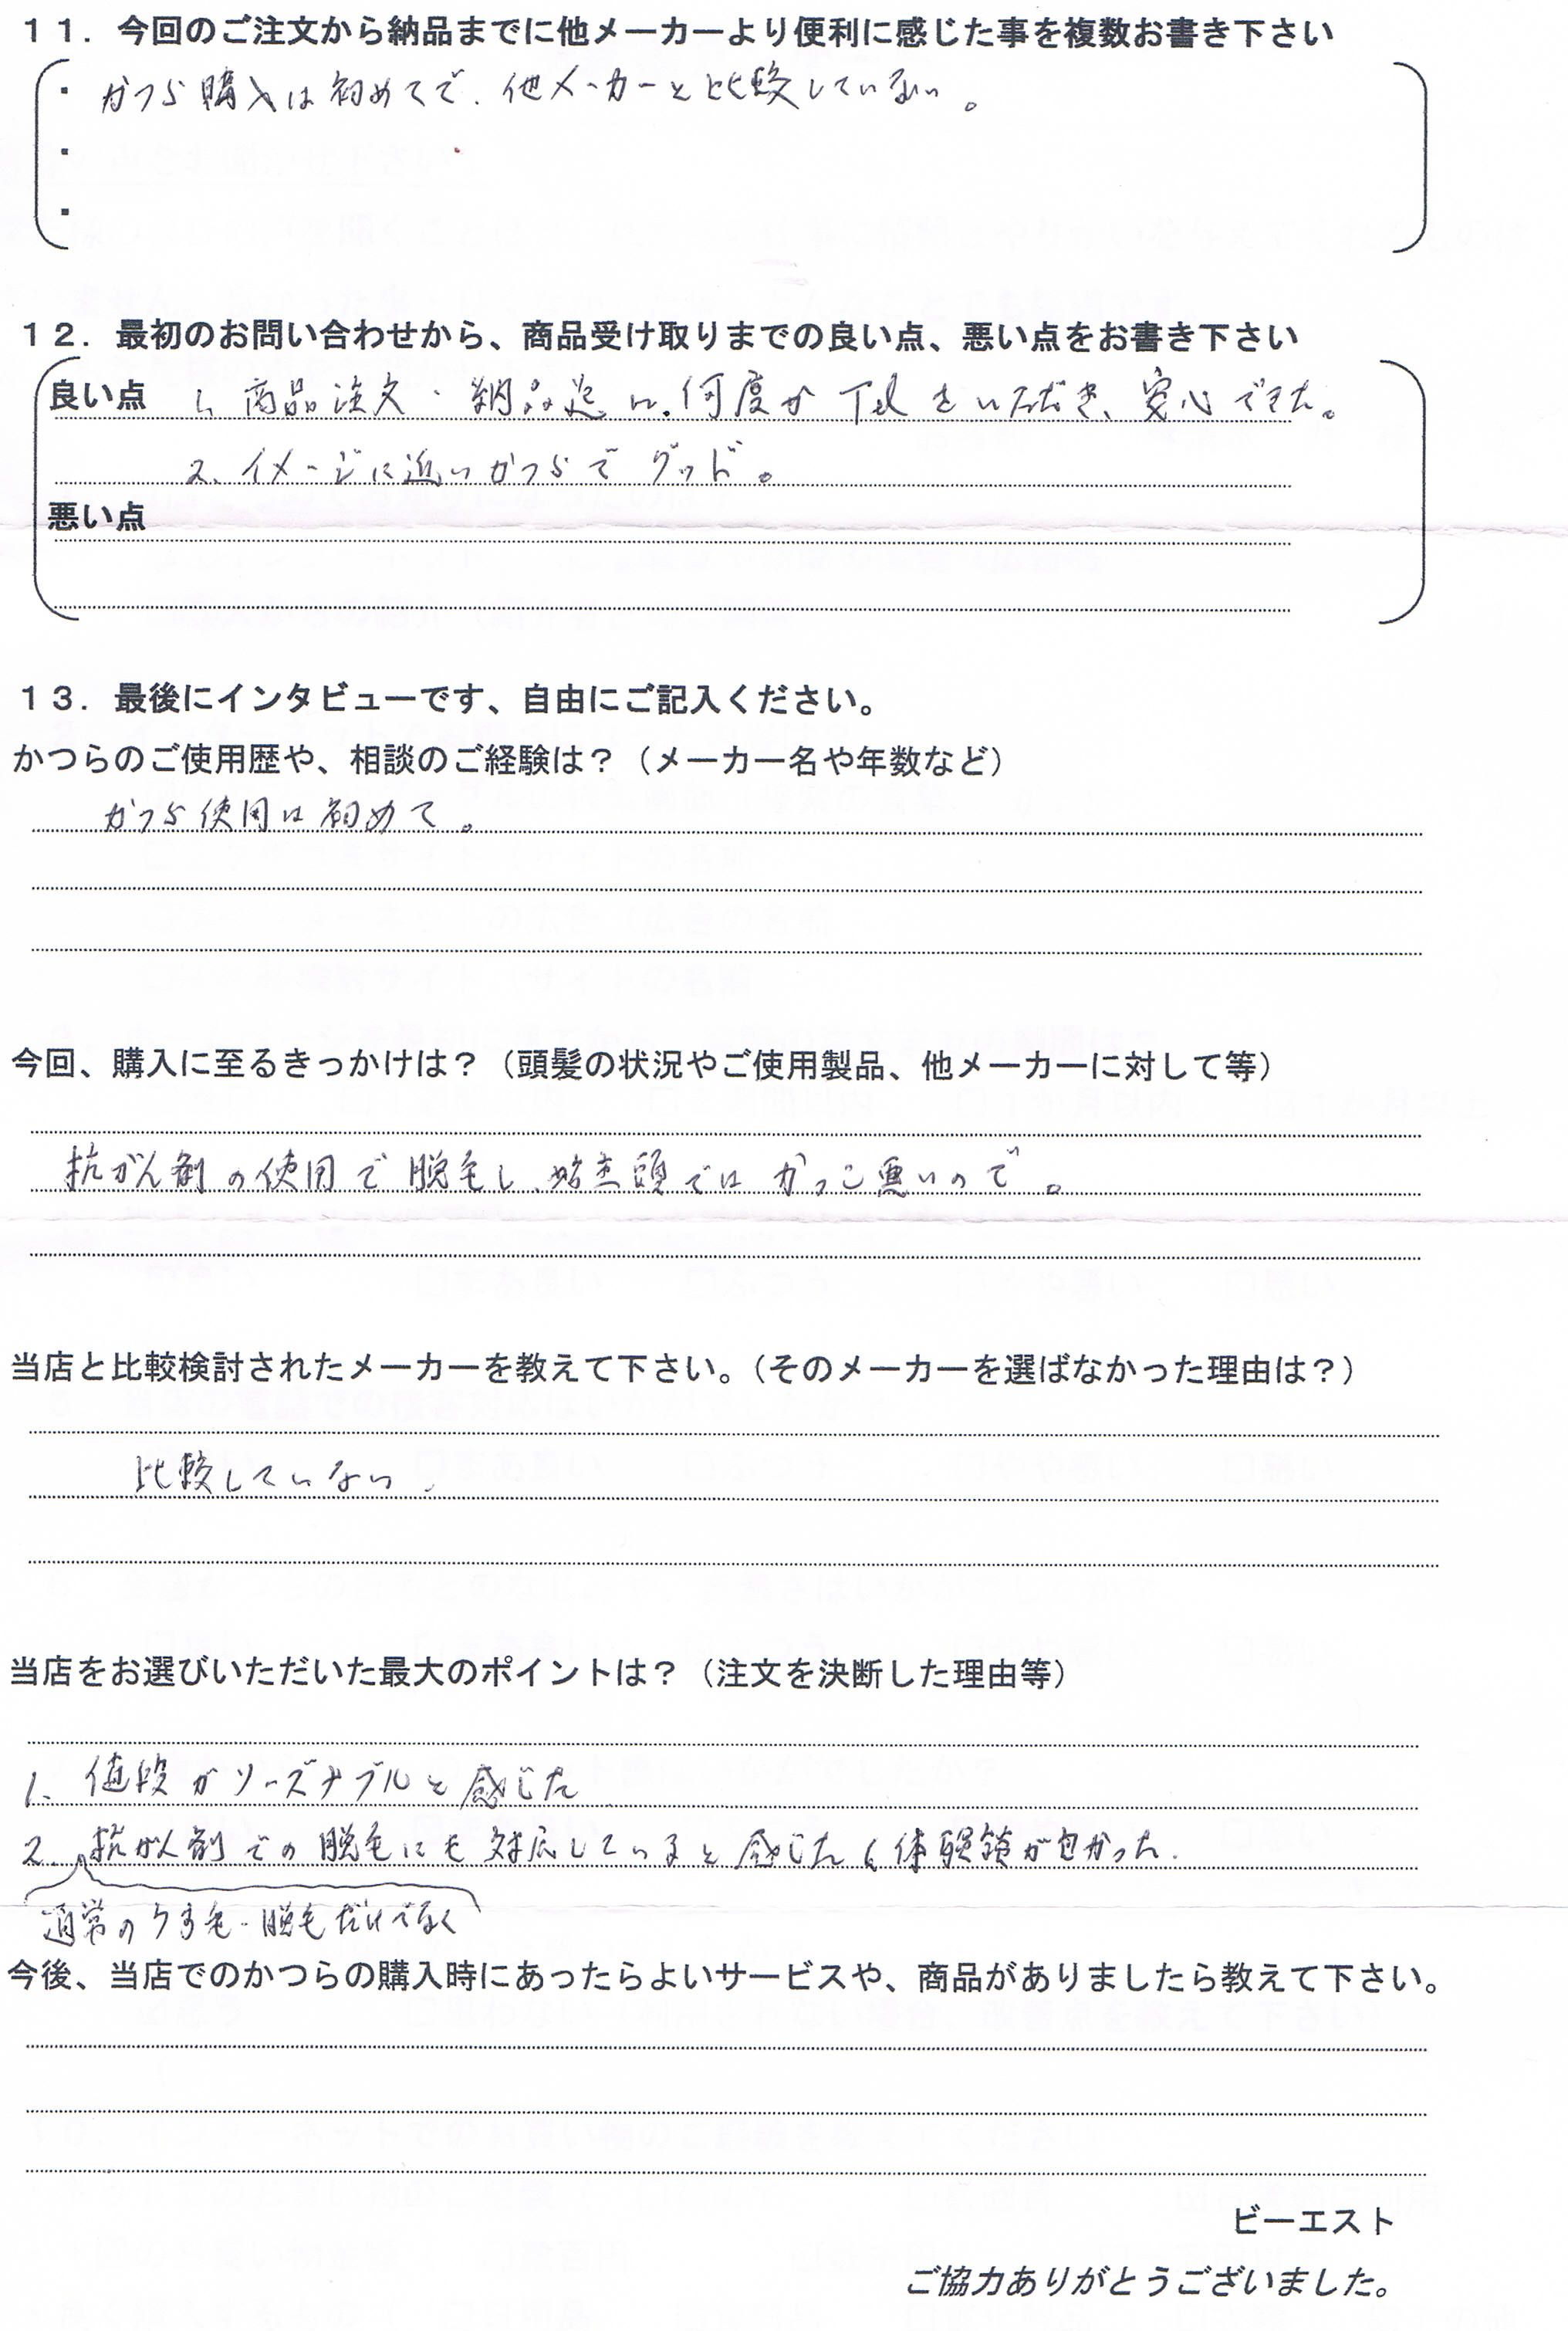 １１．今回のご注文から納品までに他メーカーより便利に感じた事を複数お書き下さい
・かつら購入は初めてで、他メーカーと比較していない。
・
・
１２．最初のお問い合わせから、商品受け取りまでの良い点、悪い点をお書き下さい
良い点 1、商品注文・納品迄に、何度かTelをいただき、安心できた。
2、イメージに近いかつらでグッド。
悪い点
１３．最後にインタビューです、自由にご記入ください。
かつらのご使用歴や、相談のご経験は？（メーカー名や年数など）
かつら使用は初めて。
今回、購入に至るきっかけは？（頭髪の状況やご使用製品、他メーカーに対して等）
抗がん剤の使用で脱毛し、坊主頭ではかっこ悪いので。
当店と比較検討されたメーカーを教えて下さい。（そのメーカーを選ばなかった理由は？）
比較していない、
当店をお選びいただいた最大のポイントは？（注文を決断した理由等）
1、値段がリーズナブルと感じた
2、抗がん剤での脱毛にも対応していると感じた（体験談が
通常のうす毛・脱毛だけでなく
今後、当店でのかつらの購入時にあったらよいサービスや、商品がありましたら教えて下さい。
ビーエスト
ご協力ありがとうございました。